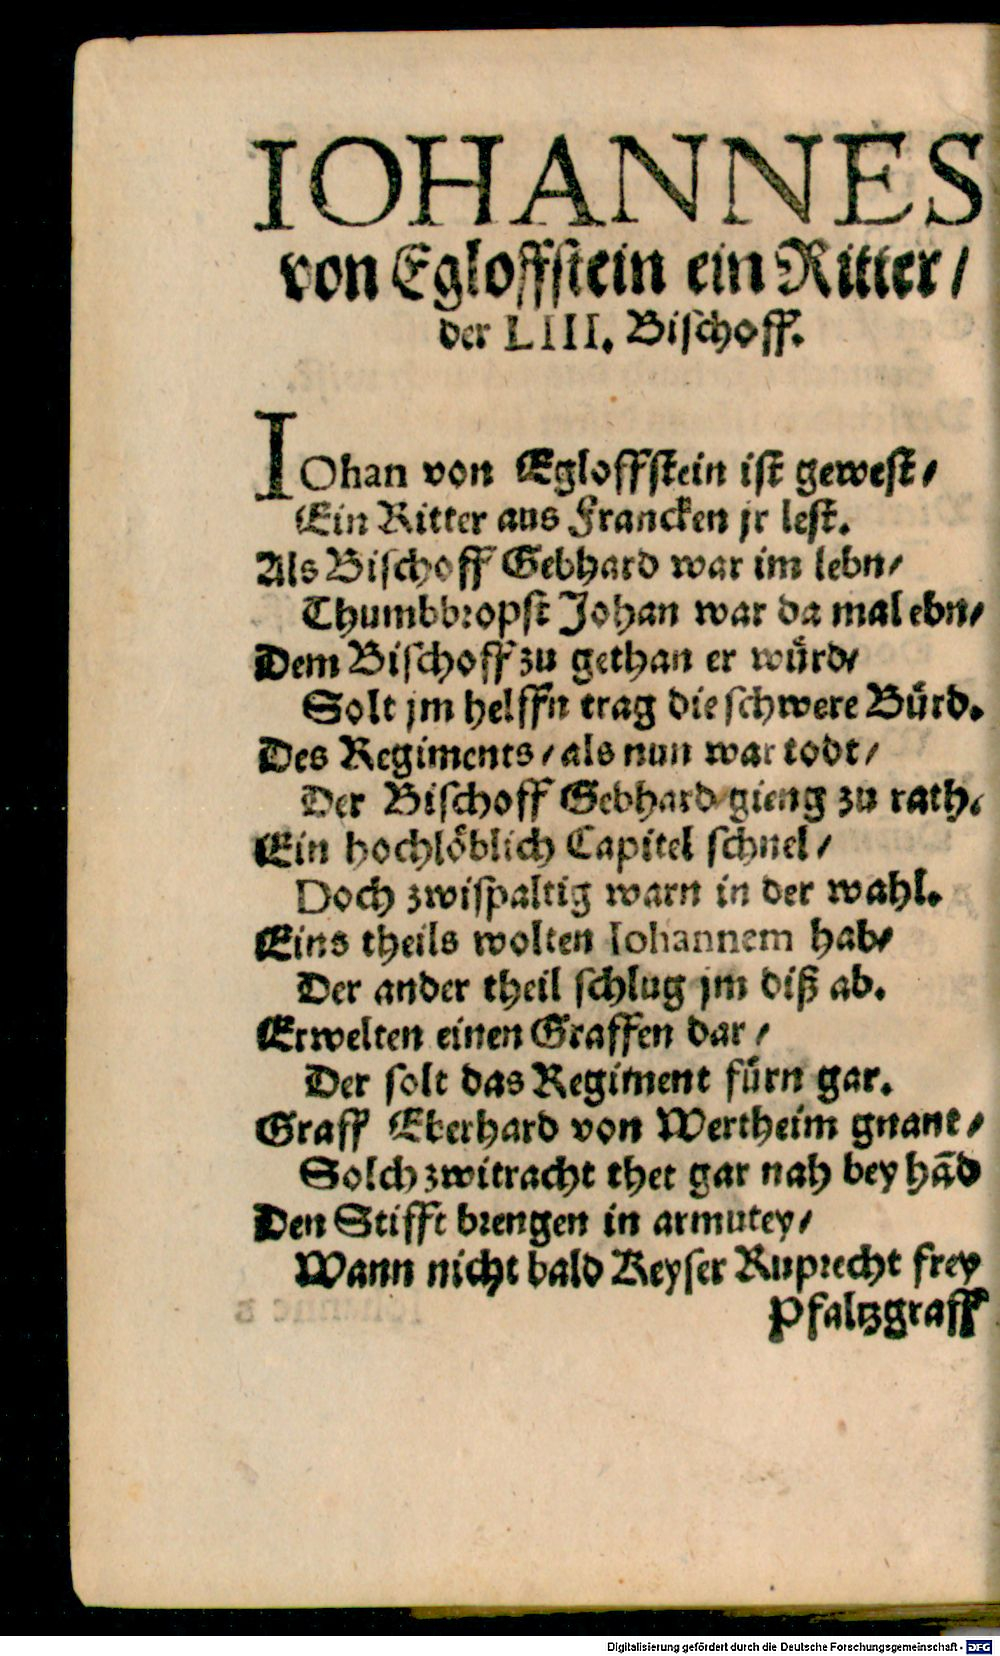 IOHANNES
von Egloffstein ein Ritter/
der LIII. Bischoff.
IOhan von Egloffstein ist gewest/
Ein Ritter aus Francken jr lest.
Als Bischoff Gebhard war im lebn/
Thumbbropst Johan war da mal ebn/
Dem Bischoff zu gethan er wuͤrd/
Solt jm helffn trag die schwere Buͤrd.
Des Regiments/ als nun war todt/
Der Bischoff Gebhard gieng zu rath.
Ein hochloͤblich Capitel schnel/
Doch zwispaltig warn in der wahl.
Eins theils wolten Iohannem hab/
Der ander theil schlug jm diß ab.
Erwelten einen Graffen dar/
Der solt das Regiment fuͤrn gar.
Graff Eberhard von Wertheim gnant/
Solch zwitracht thet gar nah bey hãd
Den Stifft brengen in armutey/
Wann nicht bald Keyser Ruprecht frey
Pfaltzgraff
Digitalisierung gefördert durch die Deutsche Forschungsgemeinschaft - DFG